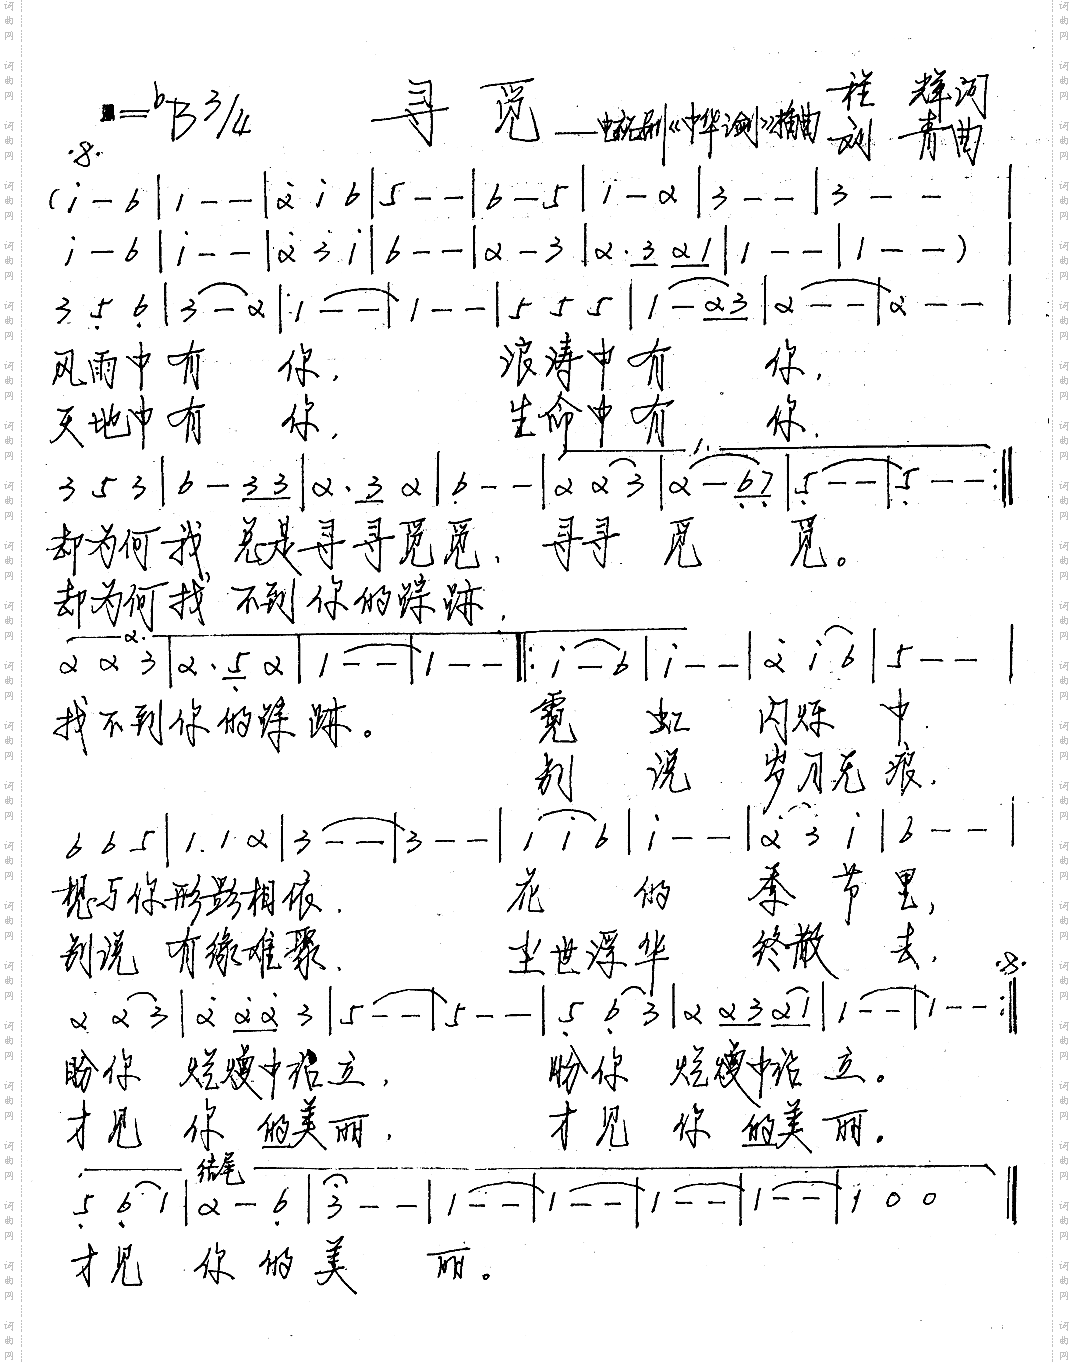 1=♭B 3/4 寻觅 ——电视剧《中华论剑》插曲 程辉词
刘青曲
·𝄋·
(i - 6 | 1 - - | 2̇ i 6 | 5 - - | 6 - 5 | 1 - 2 | 3 - - | 3 - - |
i - 6 | i - - | 2̇ 3̇ i | 6 - - | 2 - 3 | 2 · 3 2 1 | 1 - - | 1 - - ) |
3 5̣ 6̣ | 3 - 2 | 1 - - | 1 - - | 5 5 5 | 1 - 2 3 | 2 - - | 2 - - |
风雨中有 你, 浪涛中有 你,
天地中有 你, 生命中有 你.
1.
3 5 3 | 6 - 3 3 | 2 · 3 2 | 6̣ - - | 2 2 3 | 2 - 6̣ 7̣ | 5̣ - - | 5̣ - - :‖
却为何我 总是寻寻觅觅, 寻寻 觅 觅。
却为何找 不到你的踪迹,
2.
2 2 3 | 2 · 5̣ 2 | 1 - - | 1 - - ‖: i - 6 | i - - | 2̇ i 6 | 5 - - |
找不到你的踪迹。 霓 虹 闪烁 中.
别 说 岁月无痕,
6 6 5 | 1. 1. 2 | 3 - - | 3 - - | 1 i 6 | i - - | 2̇ 3 i | 6 - - |
想与你形影相依, 花 的 季节里,
别说 有缘难聚, 尘世浮华 终散 去,
·𝄋·
2 2 3 | 2̇ 2̇ 2̇ 3 | 5 - - | 5 - - | 5̣ 6̣ 3 | 2 2 3 2 1 | 1 - - | 1 - - :‖
盼你 烂熳中站立, 盼你 烂熳中站立。
才见 你 的美丽, 才见 你 的美丽。
结尾
5̣ 6̣ 1 | 2 - 6̣ | 3 - - | 1 - - | 1 - - | 1 - - | 1 - - | 1 0 0 ‖
才见 你 的美 丽。
词曲网